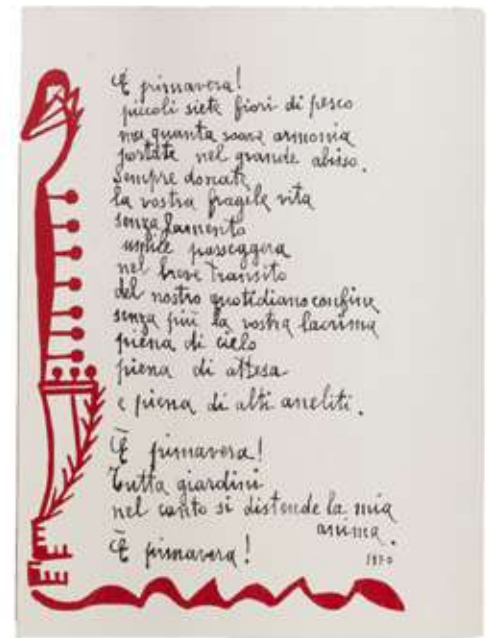 È primavera!
piccoli siete fiori di pesco
ma quanta soave armonia
portate nel grande abisso.
Sempre donate
la vostra fragile vita
senza lamento
umile passeggera
nel breve transito
del nostro quotidiano confine
senza più la vostra lacrima
piena di cielo
piena di attesa
e piena di alti aneliti.
È primavera!
Tutta giardini
nel canto si distende la mia
anima.
È primavera!